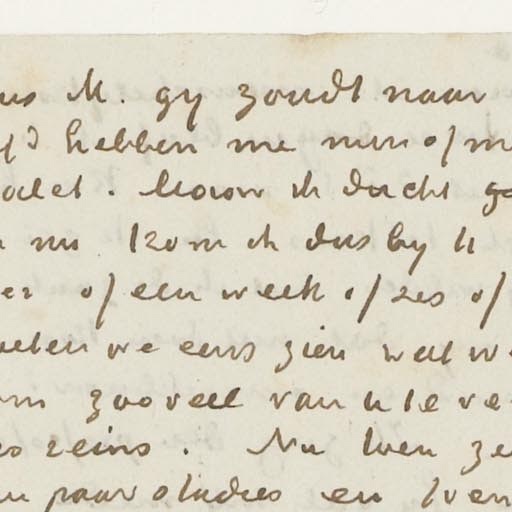 us M. gy zoudt naar
hebben me min of m
Maar ik dacht
nu kom ik dus by U
er of een week of zes of
we eens zien wat w
zooveel van U te ve
reins. Nu ben ze
paar studies en ben